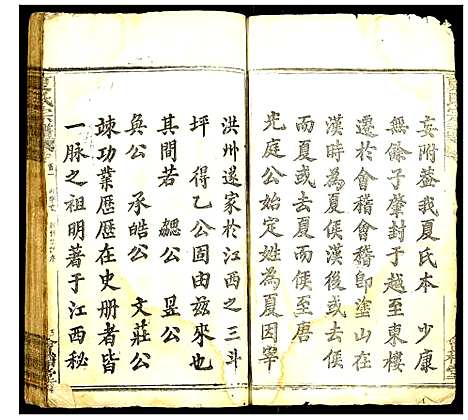 妄附葢我夏氏本 少康
無餘子肇封于越至東樓
遷於會稽會稽即塗山在
漢時為夏侯漢後或去侯
而夏或去夏而侯至唐
光庭公始定姓為夏因宰
洪州遂家於江西之三斗
坪 得乙公固由茲來也
其間若 勰公 昱公
奐公 承皓公 文莊公
竦功業歷歷在史册者皆
一脉之祖明著于江西秘